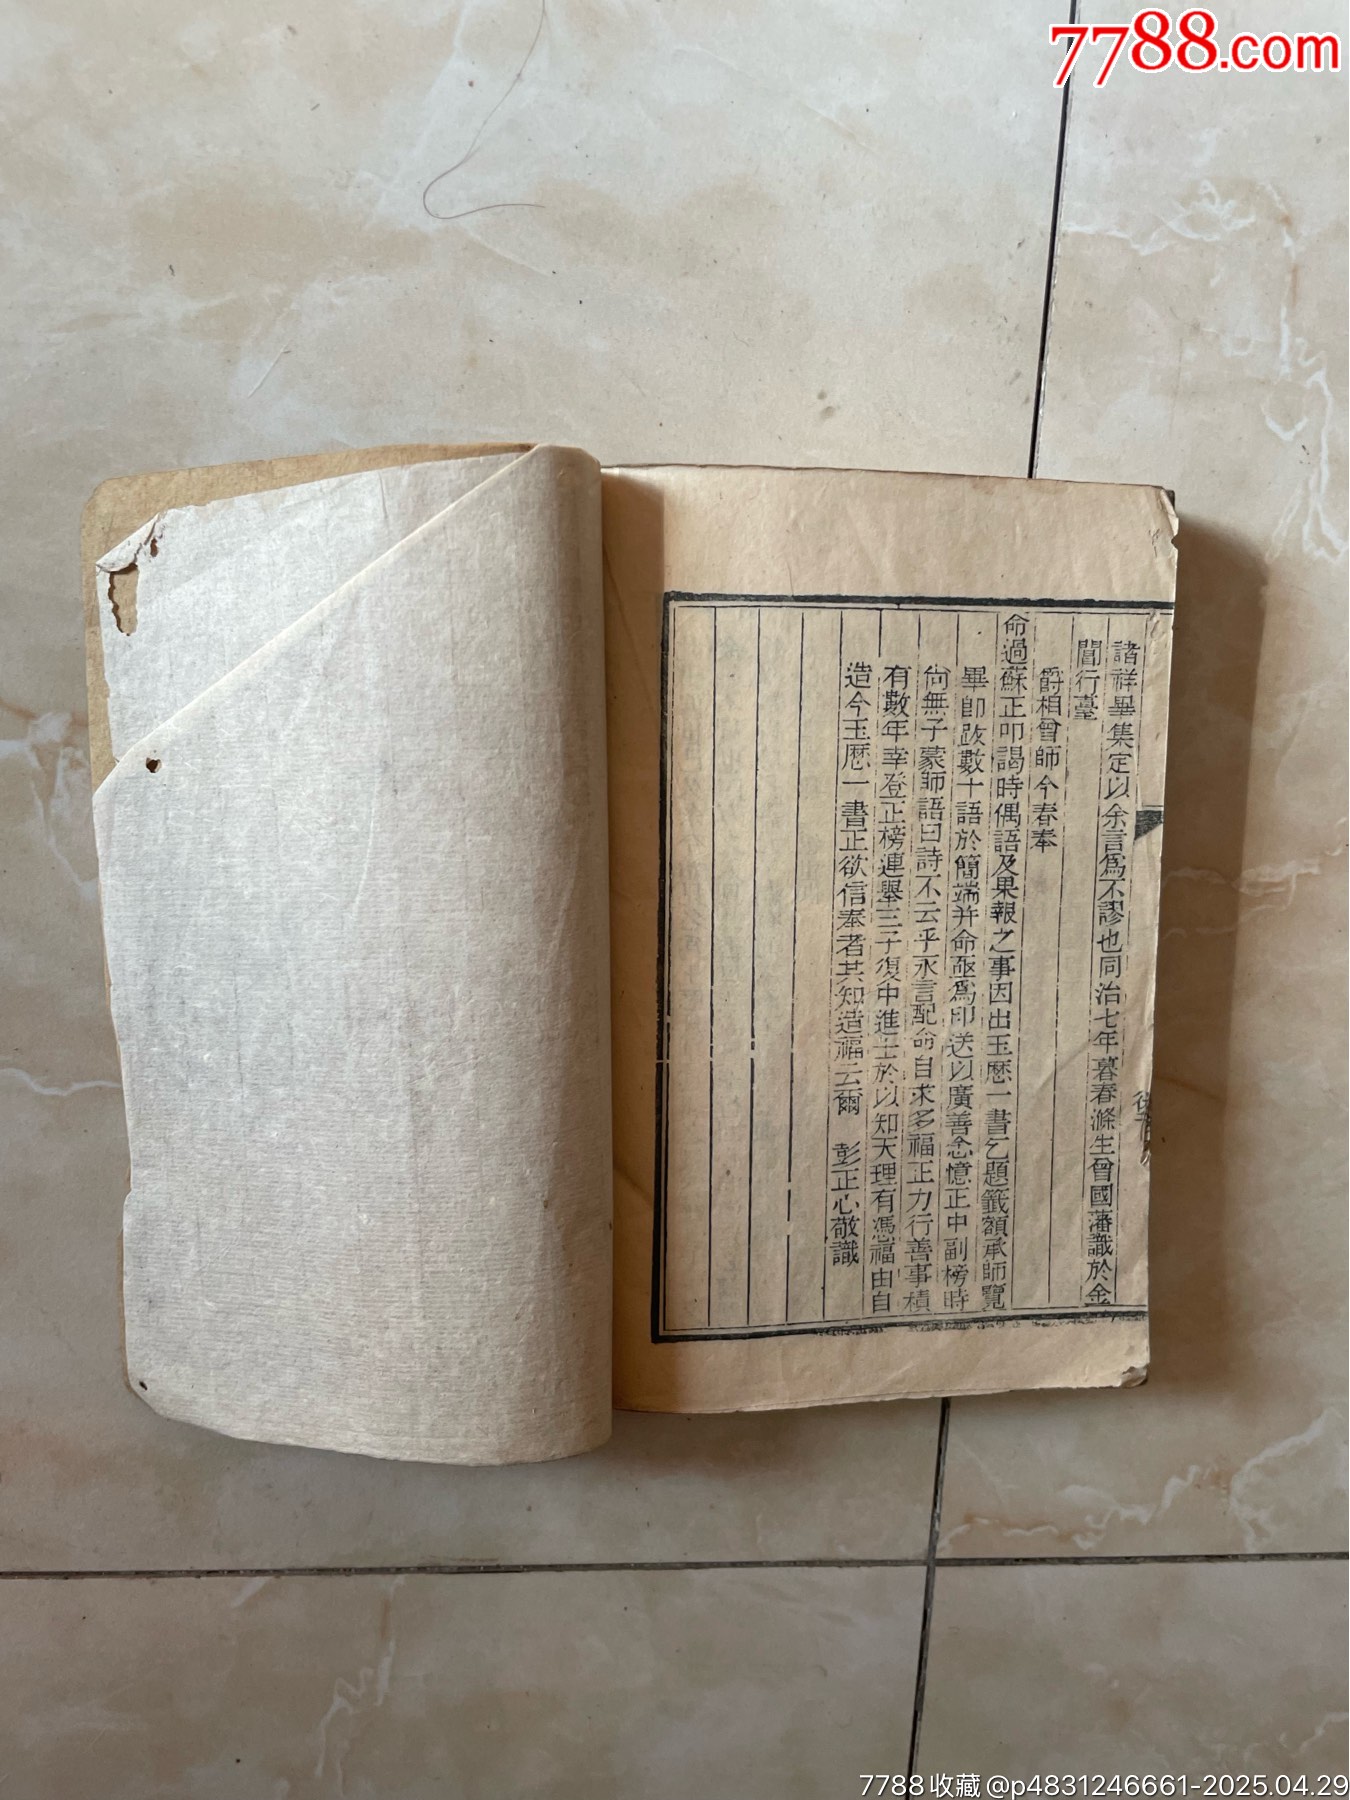 7788.com
諸祥畢集定以余言為不謬也同治七年暮春滌生曾國藩識於金
閶行臺
爵相曾師今春奉
命過蘇正叩謁時偶語及果報之事因出玉歷一書乞題籤額承師覽
畢即跋數十語於簡端并命亟為印送以廣善念憶正中副榜時
尚無子蒙師語曰詩不云乎永言配命自求多福正力行善事積
有數年幸登正榜連舉三子復中進士於以知天理有憑福由自
造今玉歷一書正欲信奉者共知造福云爾 彭正心敬識
7788收藏@p4831246661-2025.04.29